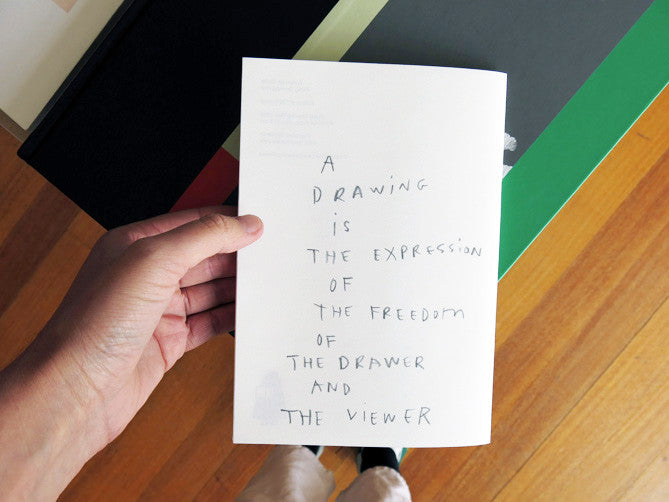 A
DRAWiNG
iS
THE EXPRESSiON
OF
THE FREEDOm
OF
THE DRAWER
AND
THE ViEWER